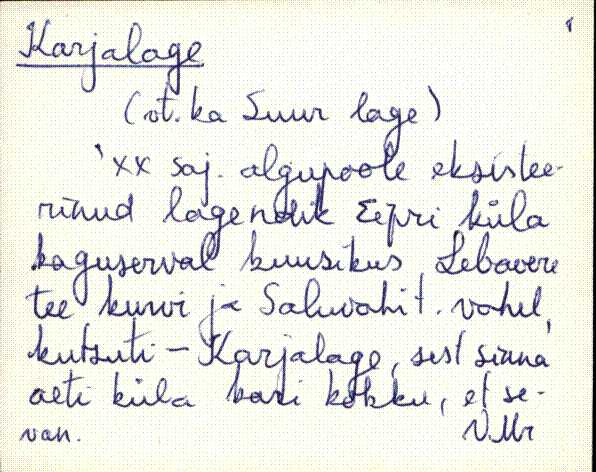 Karjalage
(vt. ka Suur lage)
XX saj. algupoole eksistee-
rinud lagendik Eipri küla
kaguserval kuusikus Lebavere
tee kurvi ja Saluvahi t. vahel,
kutsuti – Karjalage, sest sinna
aeti küla kari kokku, et se-
van.
V.Mr